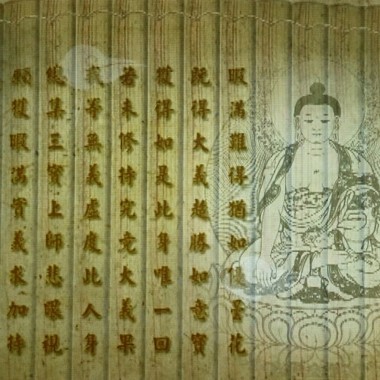 暇滿難得猶如優曇花
既得大義超勝如意寶
獲得如是此身唯一回
若未修持究竟大義果
我等無義虛度此人身
總集三寶上師悲眼視
願獲暇滿實義求加持